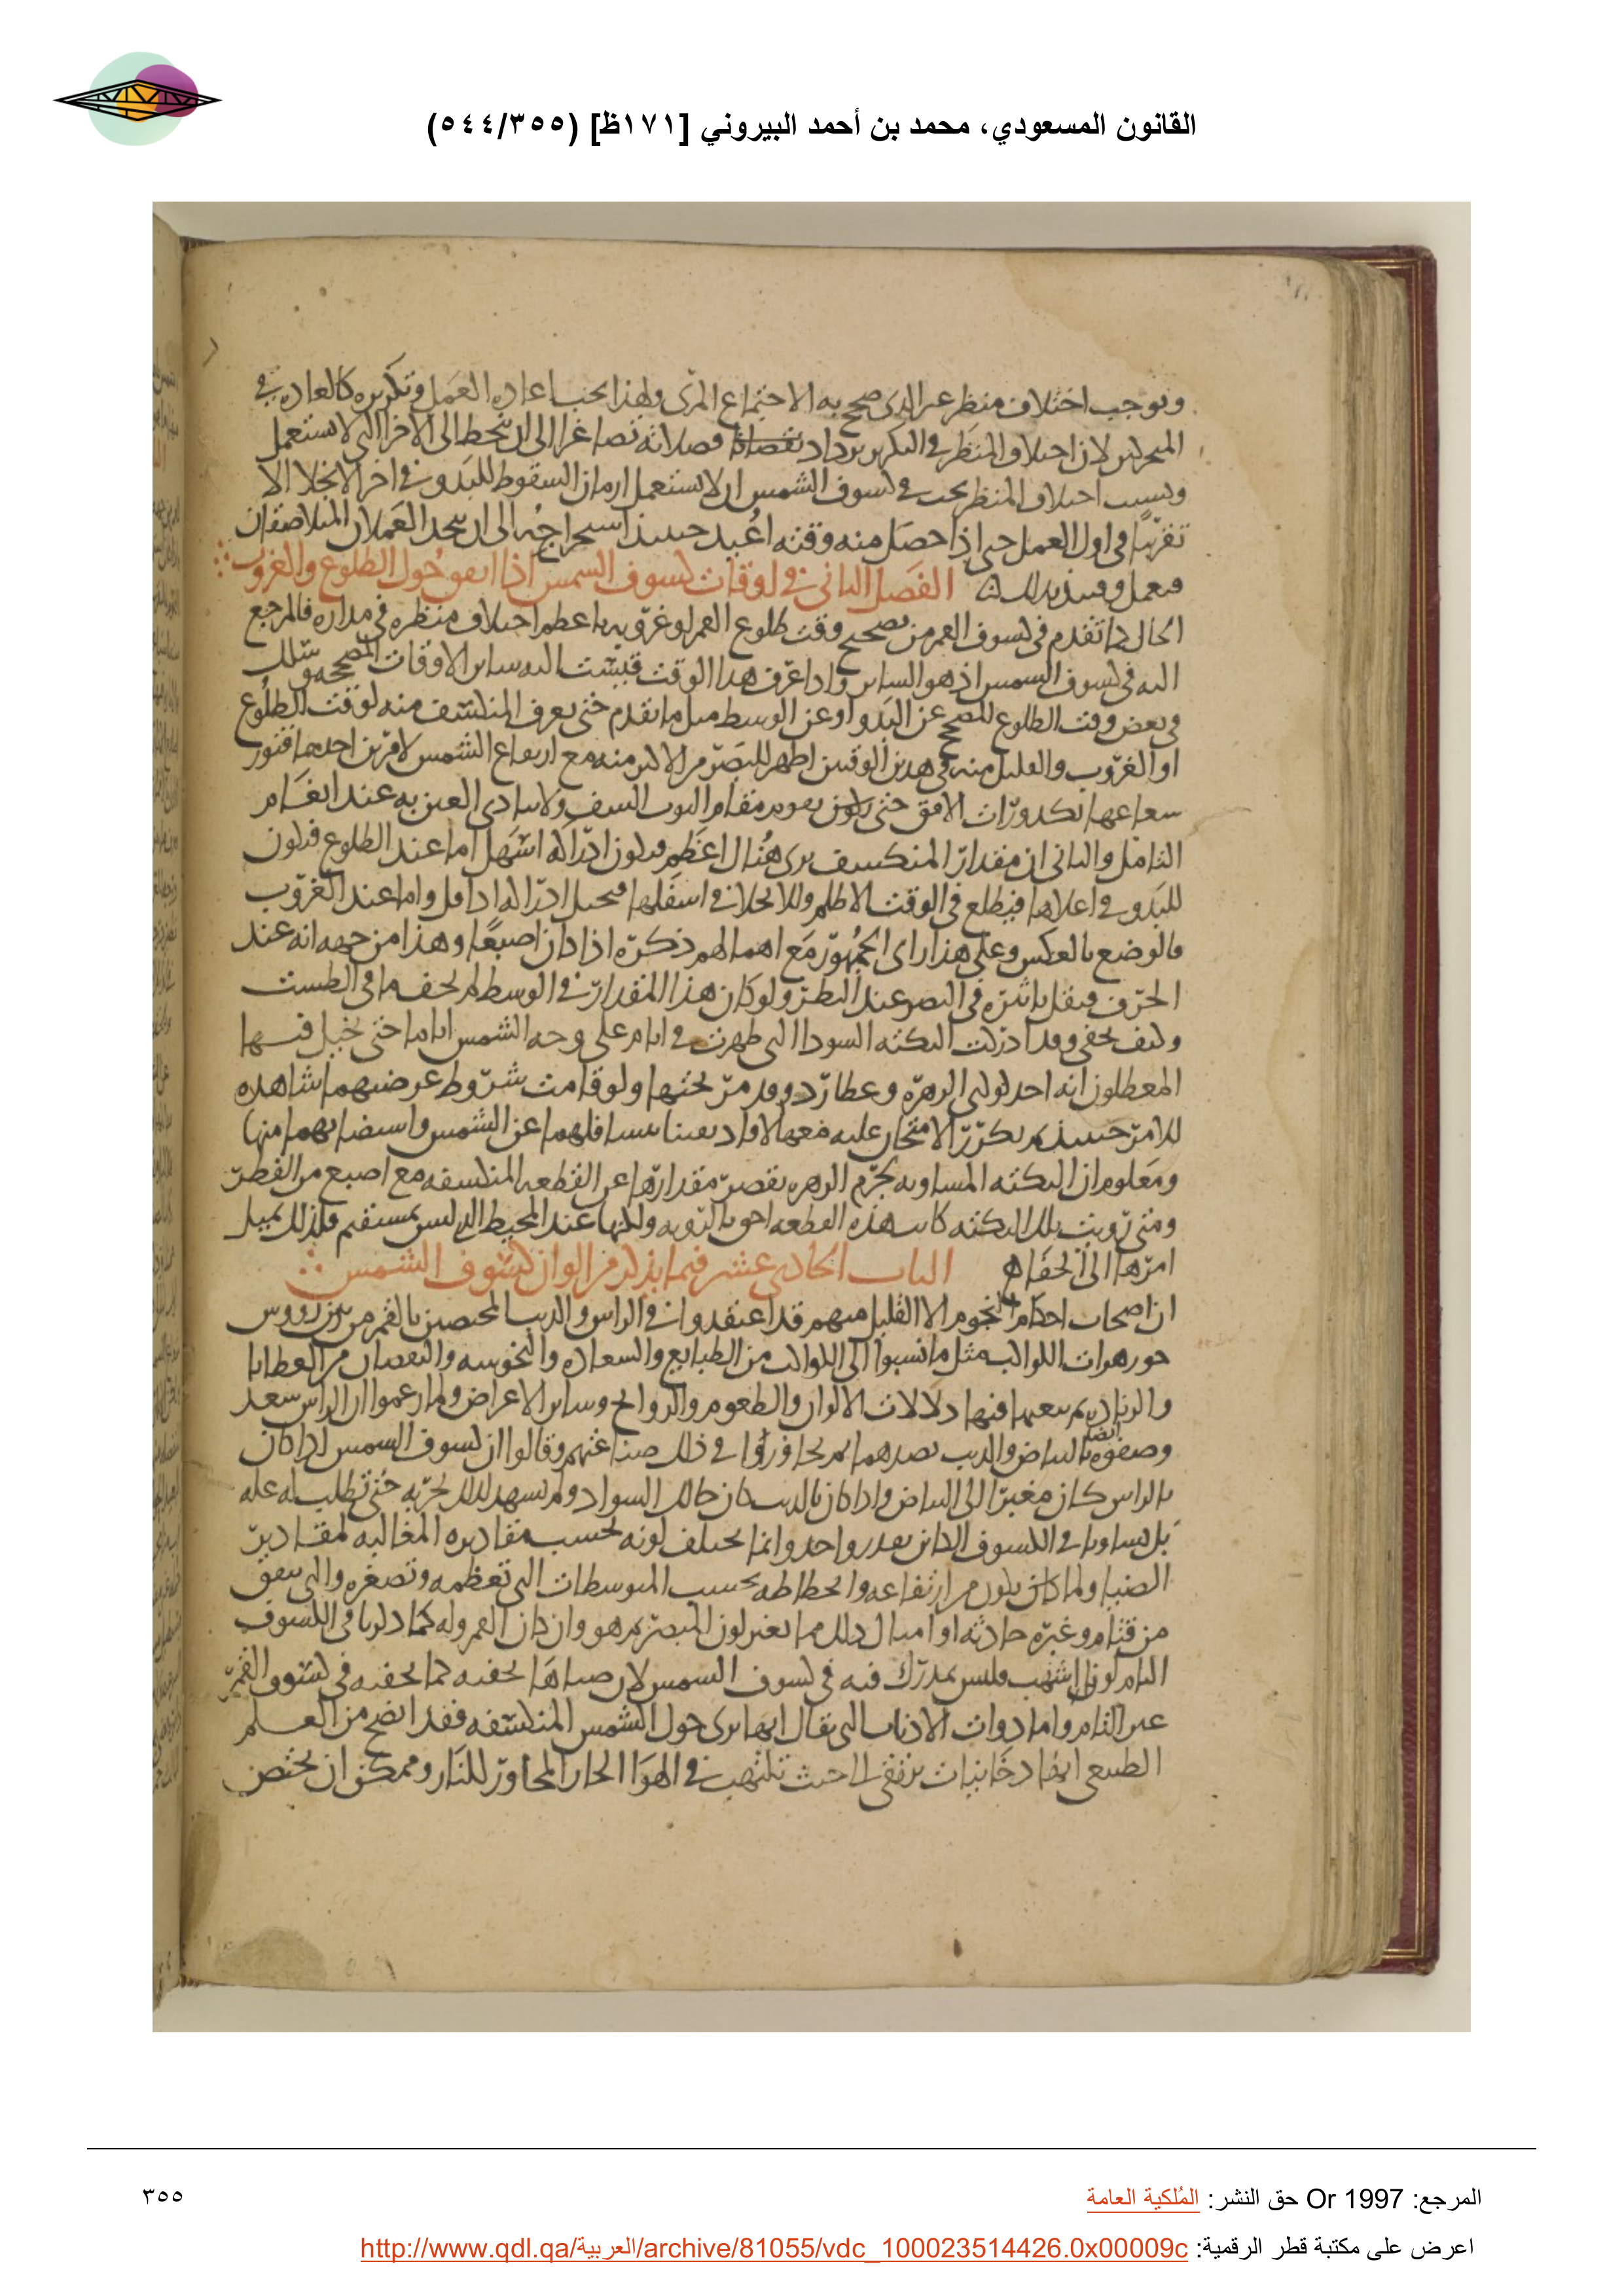 القانون المسعودي، محمد بن أحمد البيروني [١٧١ظ] (٥٤٤/٣٥٥)
وتوجب اختلاف منظر عر الذى صحح به الاجتماع المرى ولهذا يجب اعاده العمل وتكريره كالعاده في
لان اختلاف المنظر في التكرير يزداد فصلاته تصاغرا الى ان ينحط الى الاخر التى لا تستعمل
وبسبب اختلاف المنظر يجب في كسوف الشمس ان لا تستعمل ازمان السقوط للبدو في اخر الانجلا الا
تقريبا في اول العمل حتى اذا حصل منه وقته اعيد حينئذ استخراجه الى ان يتحد العملان المتلاصقان
الفصل الثانى في اوقات كسوف الشمس اذا اتفق حول الطلوع والغروب
الحال كما تقدم في كسوف القمر من تصحيح وقت طلوع القمر او غروبه باعظم اختلاف منظره في مداره فالمرجع
اليه في كسوف الشمس اذ هو الساتر واذا عرف هذا الوقت قيست اليه ساير الاوقات المصححه
في بعض وقت الطلوع المصحح عن البدو او عن الوسط مثل ما تقدم حتى يعرف المنكسف منه لوقت الطلوع
او الغروب والقليل منه في هدين الوقتين اظهر للبصر من الاكثر منه مع ارتفاع الشمس لامرين احدهما فتور
شعاعها بكدورات الافق حتى يقوم مقام الثوب الشف ولا يتاذى العين به عند انعام
التامل والثانى ان مقدار المنكسف يرى هناك اعظم فيكون ادراكه اسهل اما عند الطلوع فيكون
للبدو في اعلاها فيطلع في الوقت الاظلم وللانجلا في اسفلها ادراكه اذا قل واما عند الغروب
فالوضع بالعكس وعلى هذا راى الجمهور مع اهمالهم ذكره اذا كان اصبعا وهذا من جهه انه عند
الحرف فيقل تاثيره في البصر عند النظر ولو كان هذا المقدار في الوسط لم يخف في الطست
وكيف يخفى وقد ادركت النكته السودا التى ظهرت في ايام على وجه الشمس اياما حتى خيل فيها
انه احد كوكبى الزهره وعطارد وقد مر تحتها ولو قامت شروط عرضيهما شاهده
للامر حينئذ لم يكرر الامتحان عليه فعها لافاد يقينا بتسافلهما عن الشمس واستضايهما منها
ومعلوم ان النكته المساويه لجرم الزهره يقصر مقدارها عن القطعه المنكسفه مع اصبع من القطر
ومتى رويت تلك النكته كانت هذه القطعه احق بالرويه ولكنها عند المحيط الذى ليس بمستقيم فلذلك يميل
امرها الى الخفا
الباب الحادى عشر فيما يذكر من الوان كسوف الشمس
ان اصحاب احكام النجوم الا القليل منهم قد اعتقدوا في الراس والذنب المختصين بالقمر من بين رووس
جوزهرات الكواكب مثل ما نسبوا الى الكواكب من الطبايع والسعاده والنحوسه والنقصان من العطايا
والزياده فيها دلالات الالوان والطعوم والروايح وساير الاعراض ولما زعموا ان الراس سعد
وصفوه ايضا بالبياض والذنب بضدهما في ذلك صناعتهم وقالوا ان كسوف الشمس اذا كان
بالراس كان مغبرا الى البياض واذا كان بالذنب كان حالك السواد ولم تشهد لذلك تجربه حتى تطلب له عله
بل تساويا في الكسوف الكاين بقدر واحد وانما يختلف لونه بحسب مقاديره المغالبه لمقادير
الضيا ولما كان يكون من ارتفاعه وانحطاطه بحسب المتوسطات التى تعظمه وتصغره والتى تتفق
من قتام وغبره حادثه او امثال ذلك مما يغير لون المبصر هو وان كان القمر وله كما ذكرنا في الكسوف
التام لون اشهب فليس بمدرك فيه في كسوف الشمس لان ضياها يخفيه كما يخفيه في كسوف القمر
غير التام واما ذوات الاذناب التى يقال انها ترى حول الشمس المنكسفه فقد اتضح من العلم
الطبيعى انها دخانيات ترتقى الى حيث تلتهب في الهوا الحار المجاور للنار وممكن ان يختص
المرجع: Or 1997 حق النشر: المُلكية العامة
٣٥٥
اعرض على مكتبة قطر الرقمية: http://www.qdl.qa/العربية/archive/81055/vdc_100023514426.0x00009c